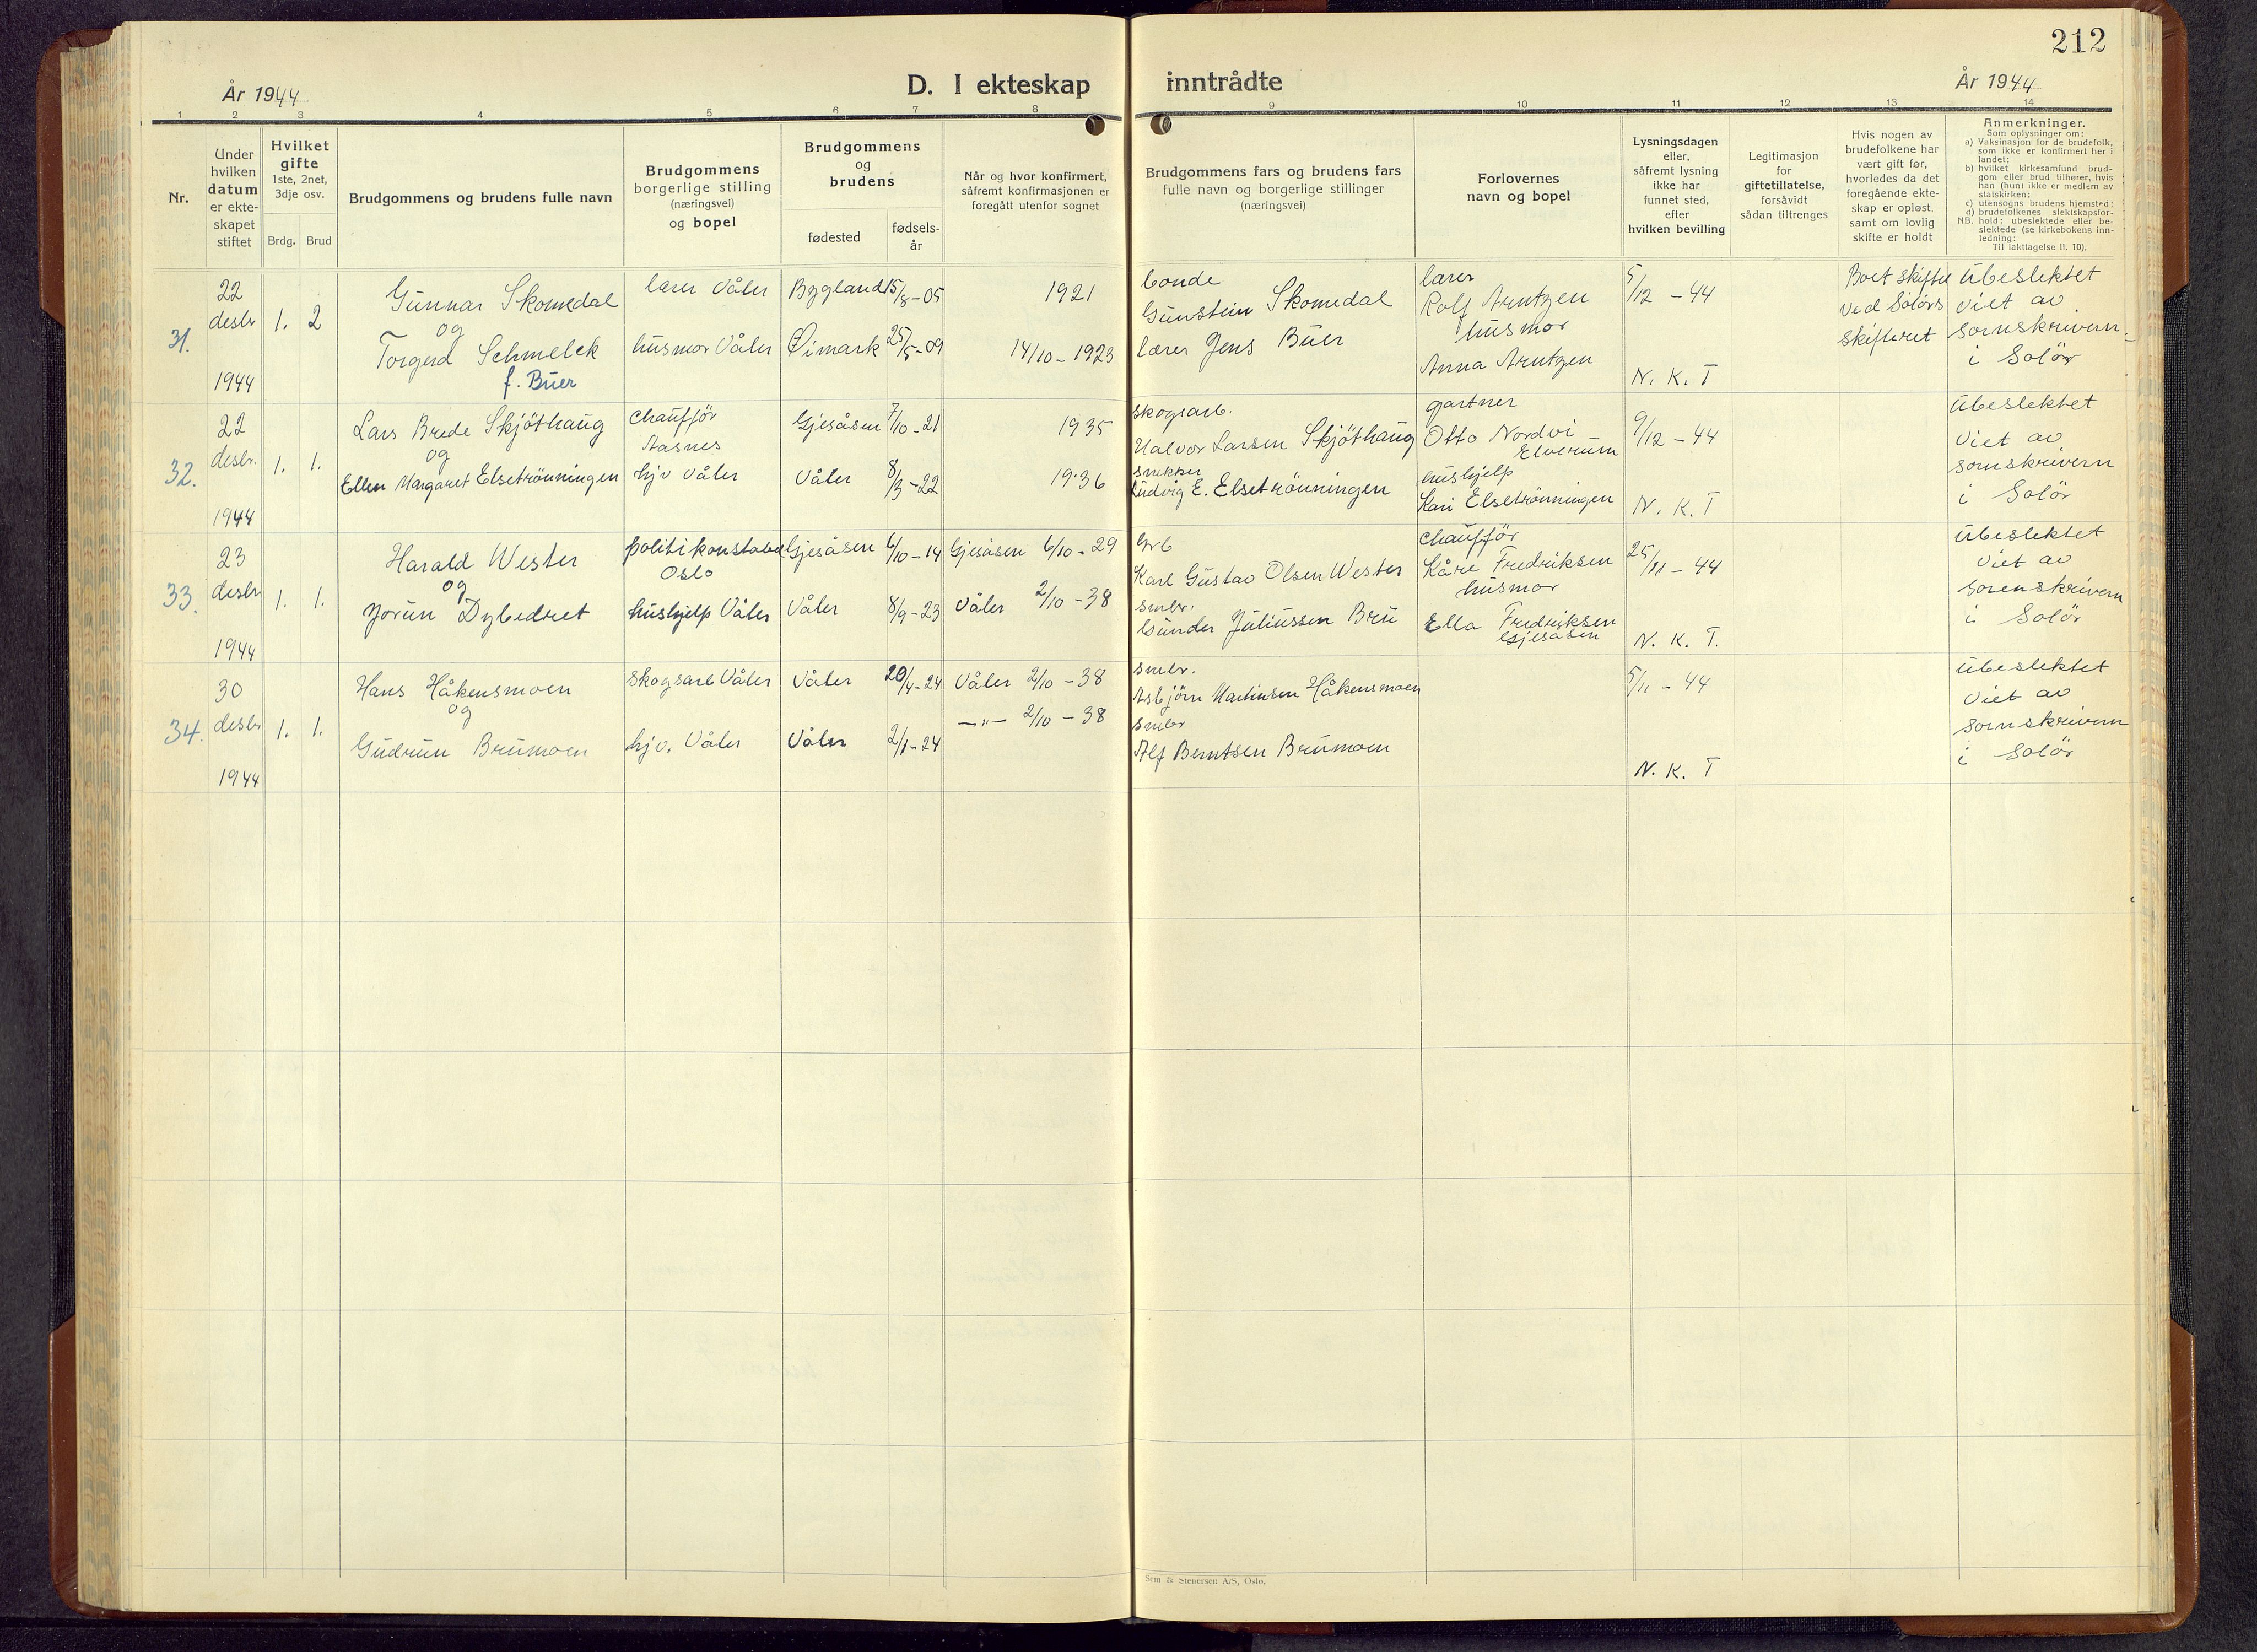 212
År 1944
D. I ekteskap inntrådte
År 1944
1 2 3 4 5 6 7 8 9 10 11 12 13 14
Nr.
Under
hvilken
datum
er ekte-
skapet
stiftet
Hvilket
gifte
1ste, 2net,
3dje osv.
Brdg. Brud
Brudgommens og brudens fulle navn
Brudgommens
borgerlige stilling
(næringsvei)
og bopel
Brudgommens
og
brudens
fødested
fødsels-
år
Når og hvor konfirmert,
såfremt konfirmasjonen er
foregått utenfor sognet
Brudgommens fars og brudens fars
fulle navn og borgerlige stillinger
(næringsvei)
Forlovernes
navn og bopel
Lysningsdagen
eller,
såfremt lysning
ikke har
funnet sted,
efter
hvilken bevilling
Legitimasjon
for
giftetillatelse,
forsåvidt
sådan tiltrenges
Hvis nogen av
brudefolkene har
vært gift før,
hvorledes da det
foregående ekte-
skap er opløst,
samt om lovlig
skifte er holdt
Anmerkninger.
Som oplysninger om:
a) Vaksinasjon for de brudefolk,
som ikke er konfirmert her i
landet;
b) hvilket kirkesamfund brud-
gom eller brud tilhører, hvis
han (hun) ikke er medlem av
statskirken;
c) utensogns brudens hjemsted;
d) brudefolkenes slektskapsfor-
NB. hold: ubeslektede eller be-
slektede (se kirkebokens inn-
ledning:
Til iakttagelse II. 10).
31.
22
desbr
1944
1. 2
Gunnar Skomedal
og
Torgerd Schmelck
f. Buer
lærer Våler
husmor Våler
Bygland 15/8-05
Øimark 25/5-09
1921
14/10-1923
bonde
Gunstein Skomedal
lærer Jens Buer
lærer
Rolf Arntzen
husmor
Anna Arntzen
5/12-44
N. K. T
Boet skiftet
ved Solørs
skifteret
Ubeslektet
viet av
sornskrivern
i Solör
32.
22
desbr.
1944
1. 1.
Lars Brede Skjöthaug
og
Ellen Margaret Elsetrönningen
Chauffør
Aasnes
hjv Våler
Gjesåsen 7/10-21
Våler 8/3-22
1935
1936
skogsarb.
Halvor Larsen Skjöthaug
snekker
Ludvig E. Elsetrönningen
gartner
Otto Nordvi
Elverum
hushjelp
Kari Elsetrönningen
9/12-44
N. K. T
Ubeslektet
Viet av
sornskrivern
i Solör
33.
23
desbr
1944
1. 1.
Harald Wester
og
Jorun Dybedret
politikonstabel
Oslo
hushjelp Våler
Gjesåsen 6/10-14
Våler 8/9-23
Gjesåsen 6/10-29
Våler 2/10-38
Grb
Karl Gustav Olsen Wester
smbr.
Gunder Juliussen Bru
Chauffør
Kåre Fredriksen
husmor
Ella Fredriksen
Gjesåsen
25/11-44
N. K. T.
Ubeslektet
Viet av
sorenskrivern
i Solör
34.
30
desbr
1944
1. 1.
Hans Håkensmoen
og
Gudrun Brumoen
Skogsarb Våler
hjv. Våler
Våler 20/4-24
Våler 2/1-24
Våler 2/10-38
—"— 2/10-38
smbr.
Asbjörn Martinsen Håkensmoen
smbr
Alf Berntsen Brumoen
5/11-44
N. K. T
Ubeslektet
Viet av
sornskrivern
i Solör
Sem & Stenersen A/S, Oslo.